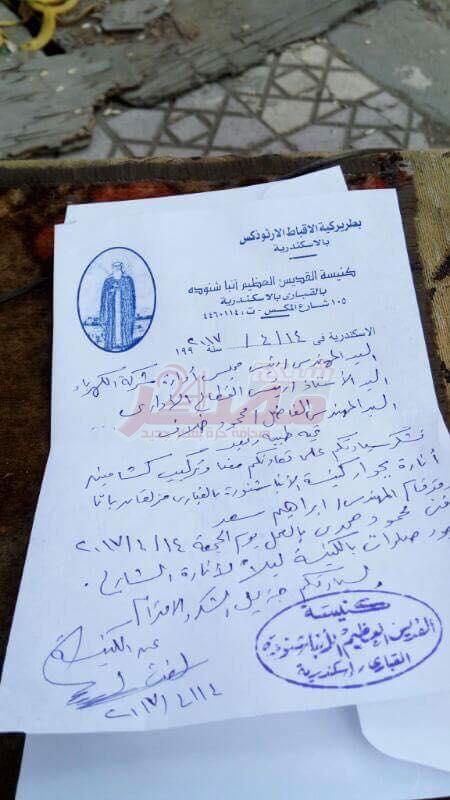 بطريركية الاقباط الارثوذكس
بالاسكندرية
كنيسة القديس العظيم انبا شنوده
بالقبارى بالاسكندرية
١٠٥ شارع المكس - ت : ٤٤٦٠١١٤
الاسكندرية فى ١٤ / ٤ / ٢٠١٧ سنة ١٩٩
السيد المهندس رئيس مجلس ادارة شركة الكهرباء
السيد الأستاذ رئيس القطاع التجارى
السيد المهندس الفاضل / محمود خلاف
تحية طيبة وبعد
نشكر سيادتكم على تعاونكم معنا وتركيب كشا
أنارة بجوار كنيسة الأنبا شنودة بالقبارى مزلقان باتا
وقام المهندس / ابراهيم سعد
محمود حمدى بالعمل يوم الجمعة ١٤ / ٤ / ٢٠١٧
صلوات بالكنيسة ليلا لأنارة الشارع .
ولسيادتكم جزيل الشكر والاحترام
عن الكنيسة
٢٠١٧/٤/١٤
كنيسة
القديس العظيم الأنبا شنوده
القبارى / اسكندرية